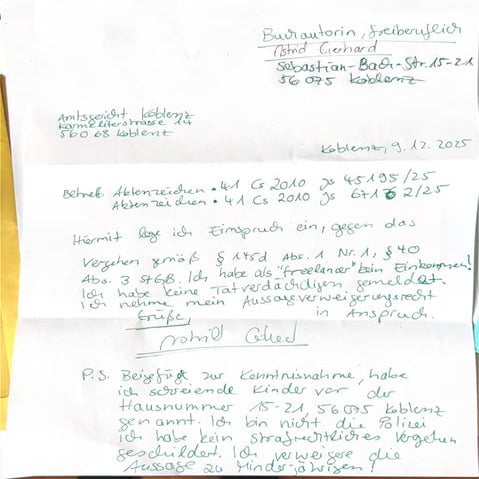 Buchautorin, freiberuflich
Astrid Gerhard
Sebastian-Bach-Str. 15-21
56075 Koblenz
Amtsgericht Koblenz
Karmeliterstrasse 14
56068 Koblenz
Koblenz, 9.12.2025
Betreff. Aktenzeichen • 41 Cs 2010 Js 45195/25
Aktenzeichen • 41 Cs 2010 Js 2/25
Hiermit lege ich Einspruch ein, gegen das
Vergehen gemäß § 145d Abs. 1 Nr. 1, § 40
Abs. 3 StGB. Ich habe als "Freelancer" kein Einkommen!
Ich habe keine Tatverdächtigen gemeldet.
Ich nehme mein Aussageverweigerungsrecht
Grüße, in Anspruch.
P.S. Beigefügt zur Kenntnisnahme, habe
ich schreiende Kinder vor der
Hausnummer 15-21, 56075 Koblenz
genannt. Ich bin nicht die Polizei
ich habe kein strafrechtliches Vergehen
geschildert. Ich verweigere die
Aussage zu Minderjährigen!